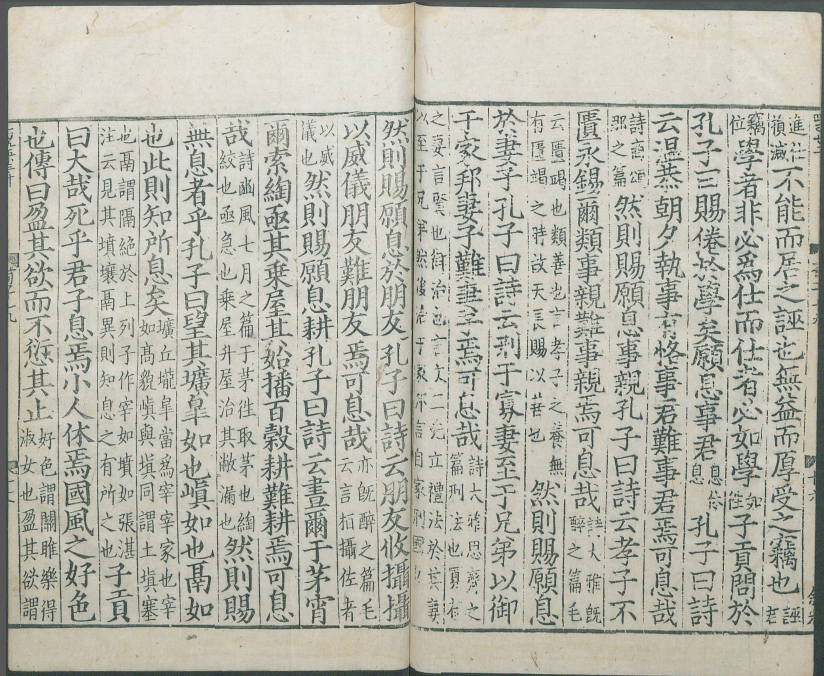 進仕損減不能而居之誣也無益而厚受之竊也誣君
竊位學者非必爲仕而仕者必如學如往子貢問於
孔子曰賜倦於學矣願息事君息休息孔子曰詩
云温恭朝夕執事有恪事君難事君焉可息哉
詩商頌那之篇然則賜願息事親孔子曰詩云孝子不
匱永錫爾類事親難事親焉可息哉詩大雅旣醉之篇毛
云匱竭也類善也言孝子之養無有匱竭之時故天長賜以善也然則賜願息
於妻子孔子曰詩云刑于寡妻至于兄弟以御
于家邦妻子難妻子焉可息哉詩大雅思齊之篇刑法也寡有
之妻言賢也御治也言文王先立禮法於其妻以至于兄弟然後治于家邦言自家刑國也
然則賜願息於朋友孔子曰詩云朋友攸攝攝
以威儀朋友難朋友焉可息哉亦旣醉之篇毛云言相攝佐者
以威儀也然則賜願息耕孔子曰詩云晝爾于茅宵
爾索綯亟其乗屋其始播百穀耕難耕焉可息
哉詩豳風七月之篇于茅徃取茅也綯絞也亟急也乗屋升屋治其敝漏也然則賜
無息者乎孔子曰望其壙皐如也嵮如也鬲如
也此則知所息矣壙丘壠皐當爲宰宰冢也宰如高貌嵮與塡同謂土塡塞
也鬲謂隔絶於上列子作宰如墳如張湛注云見其墳壤鬲異則知息之有所之也子貢
曰大哉死乎君子息焉小人休焉國風之好色
也傳曰盈其欲而不愆其止好色謂關雎樂得淑女也盈其欲謂